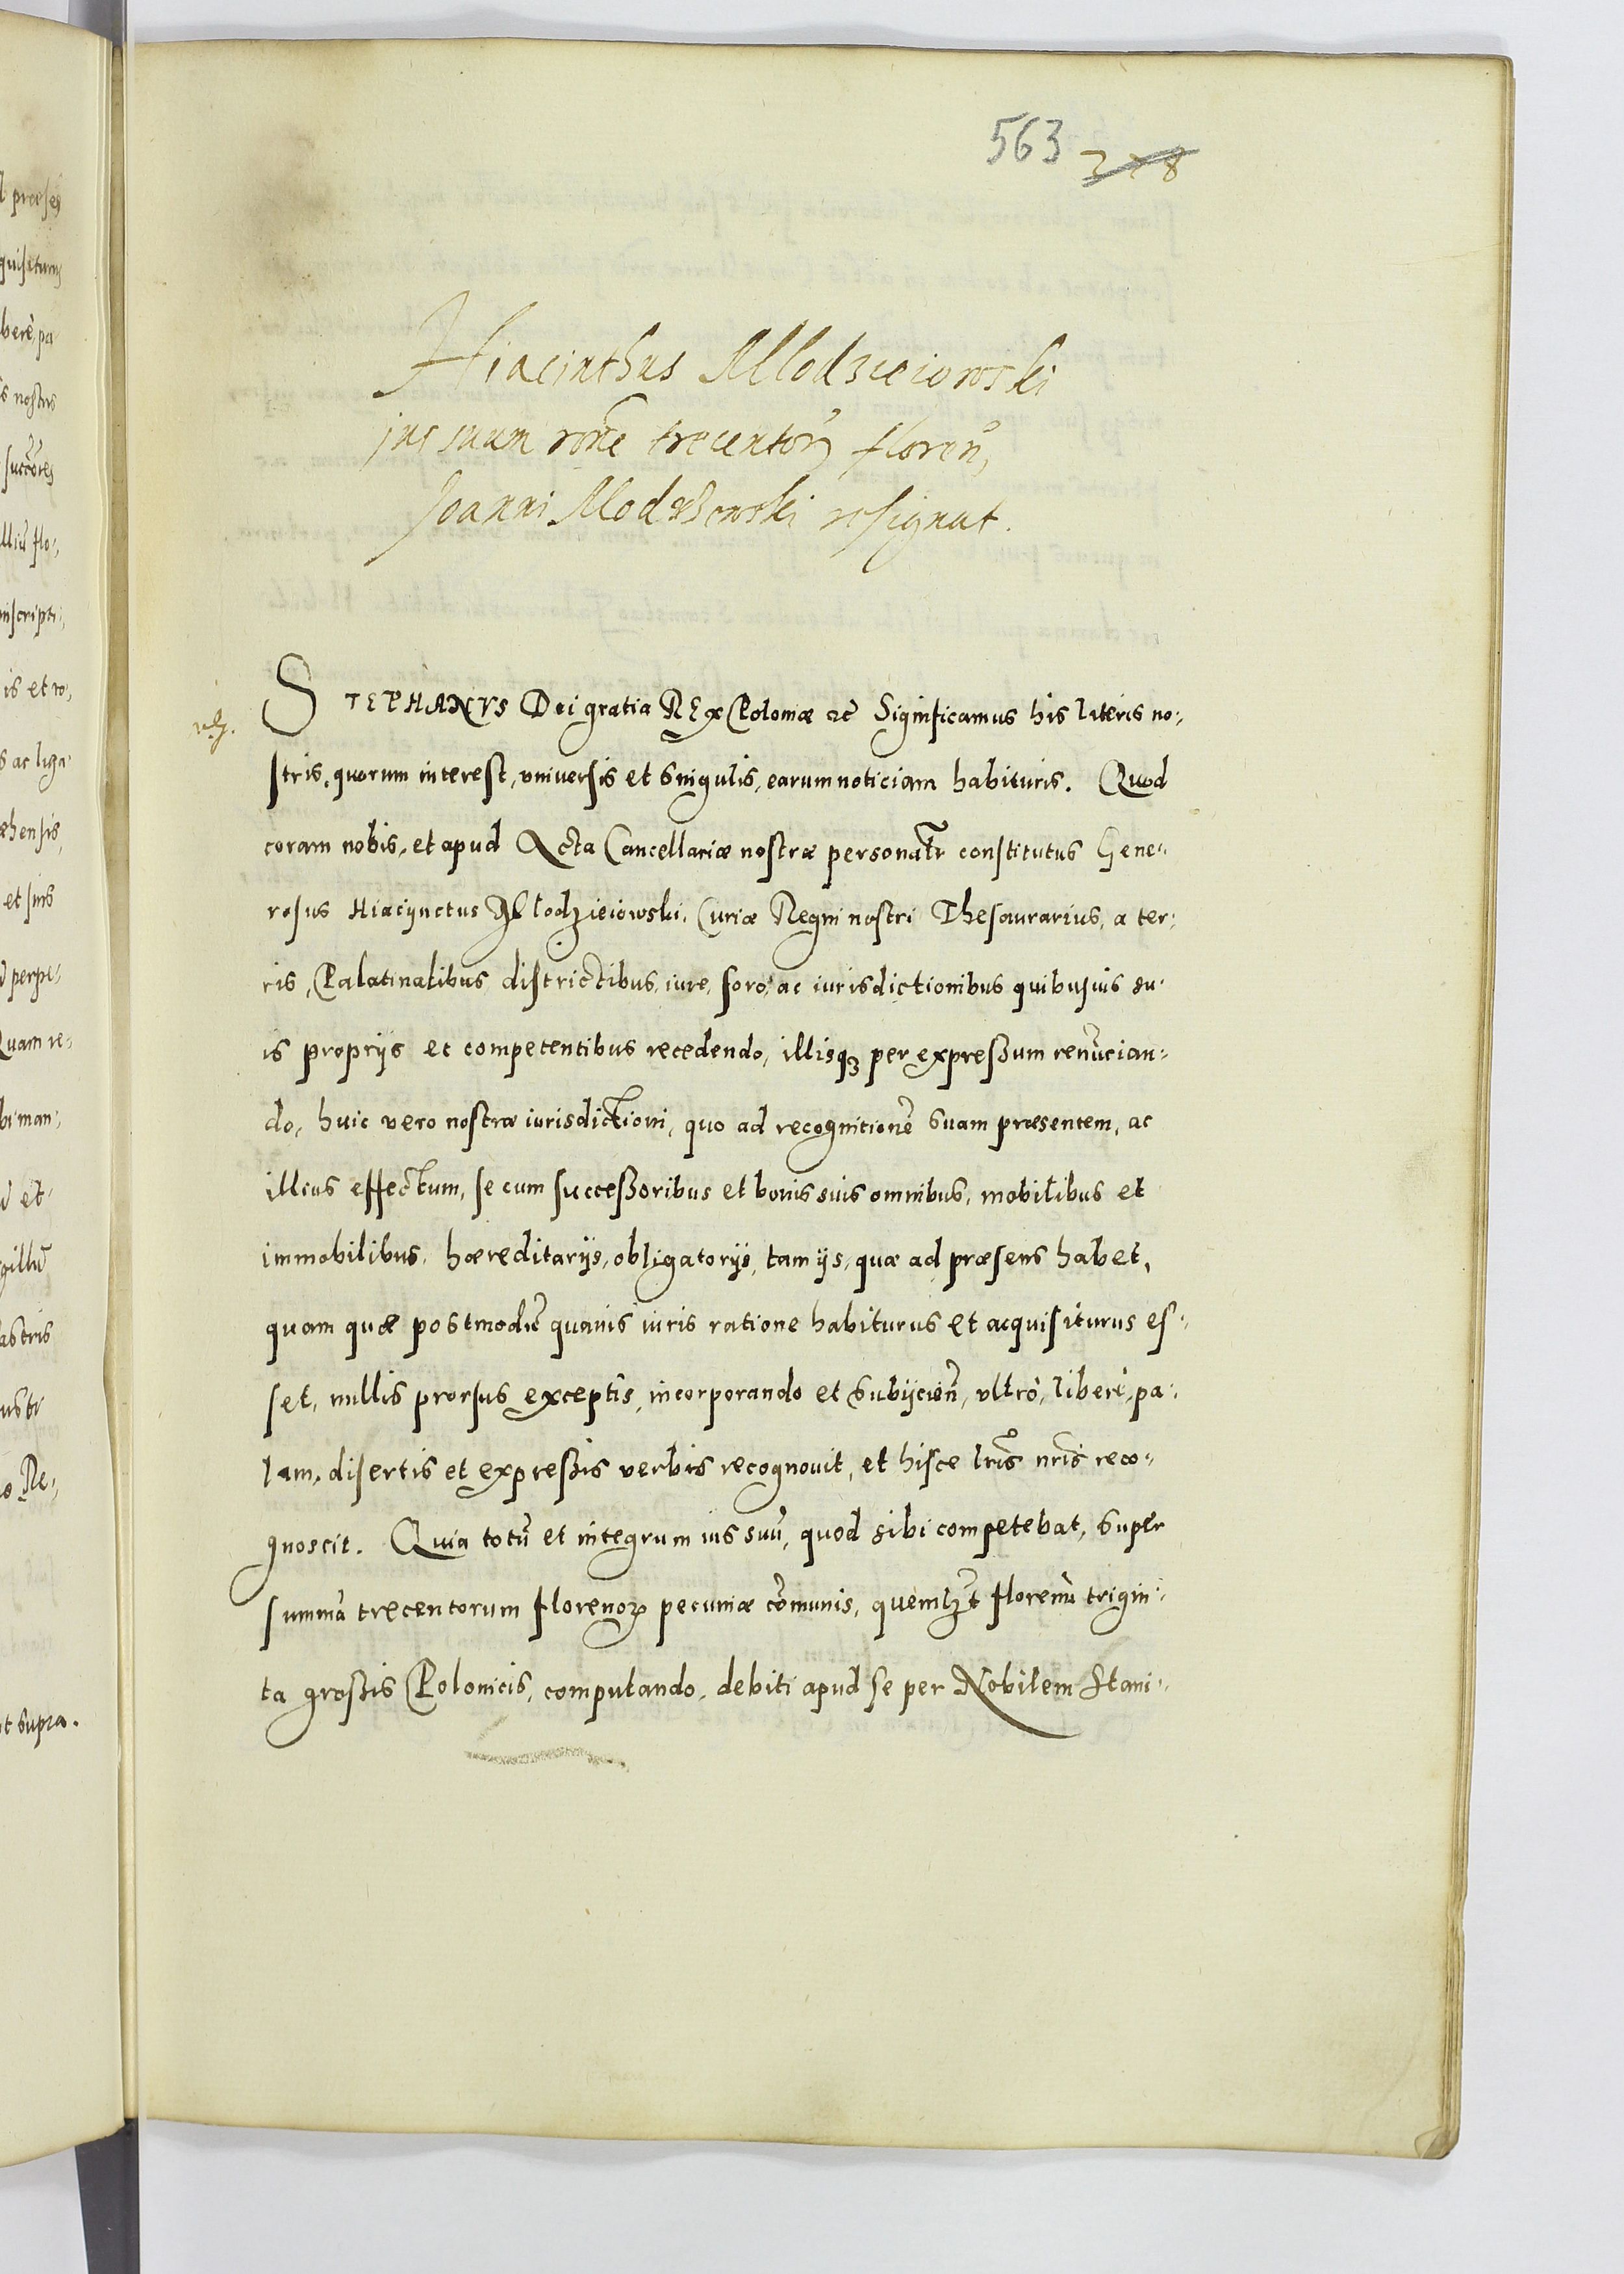 563 378
Hiacinthus Mlodzieiowski
jus suum rõne trecentorũ florenͫ,
Joanni Modrzewski resignat.
STEPHANVS Dei gratia REx Poloniæ ⁊c̃ Significamus his literis no:,
stris, quorum interest, vniuersis et singulis, earum noticiam habituris. Quod
coram nobis, et apud Acta Cancellariæ nostræ personatr̃ constitutus Gene:,
rosus Hiacÿnctus Mlodzieiowski, Curiæ Regni nostri Thesaurarius, a ter:,
ris, Palatinatibus districtibus, iure, foro, ac iurisdictionibus quibusuis su:
is proprijs et competentibus recedendo, illisqꝫ per expreßum renũcian:,
do, huic vero nostræ iurisdictioni, quo ad recognitionẽ suam præsentem, ac
illius effectum, se cum succeßoribus et bonis suis omnibus, mobilibus et
immobilibus, hæreditarijs, obligatorijs, tam ijs, quæ ad præsens habet,
quam quæ postmodũ quauis iuris ratione habiturus et acquisiturus es:,
set, nullis prorsus exceptis, incorporando et subijcień, vltrò, liberè, pa:,
lam, disertis et expreßis verbis recognouit, et hisce lr̃is nr̃is reco:,
gnoscit. Quia totũ et integrum ius suũ, quod sibi competebat, super
summã trecentorum florenoꝝ pecuniæ cõmunis, quemlꝫt florenũ trigin:,
ta großis Polonicis, computando, debiti apud se per Nobilem Stani:,
l præses
quisitum
berè, pa
is nostris
succ̃ores
inscripti:,
is et ro:,
s ac liga
et suis
perpe:,
Quam re:,
bi man:,
et
gillũ
astris
Re:,
vt supra.